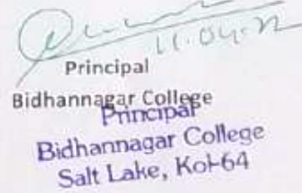 11.04.22
Principal
Bidhannagar College
Principal
Bidhannagar College
Salt Lake, Kol-64